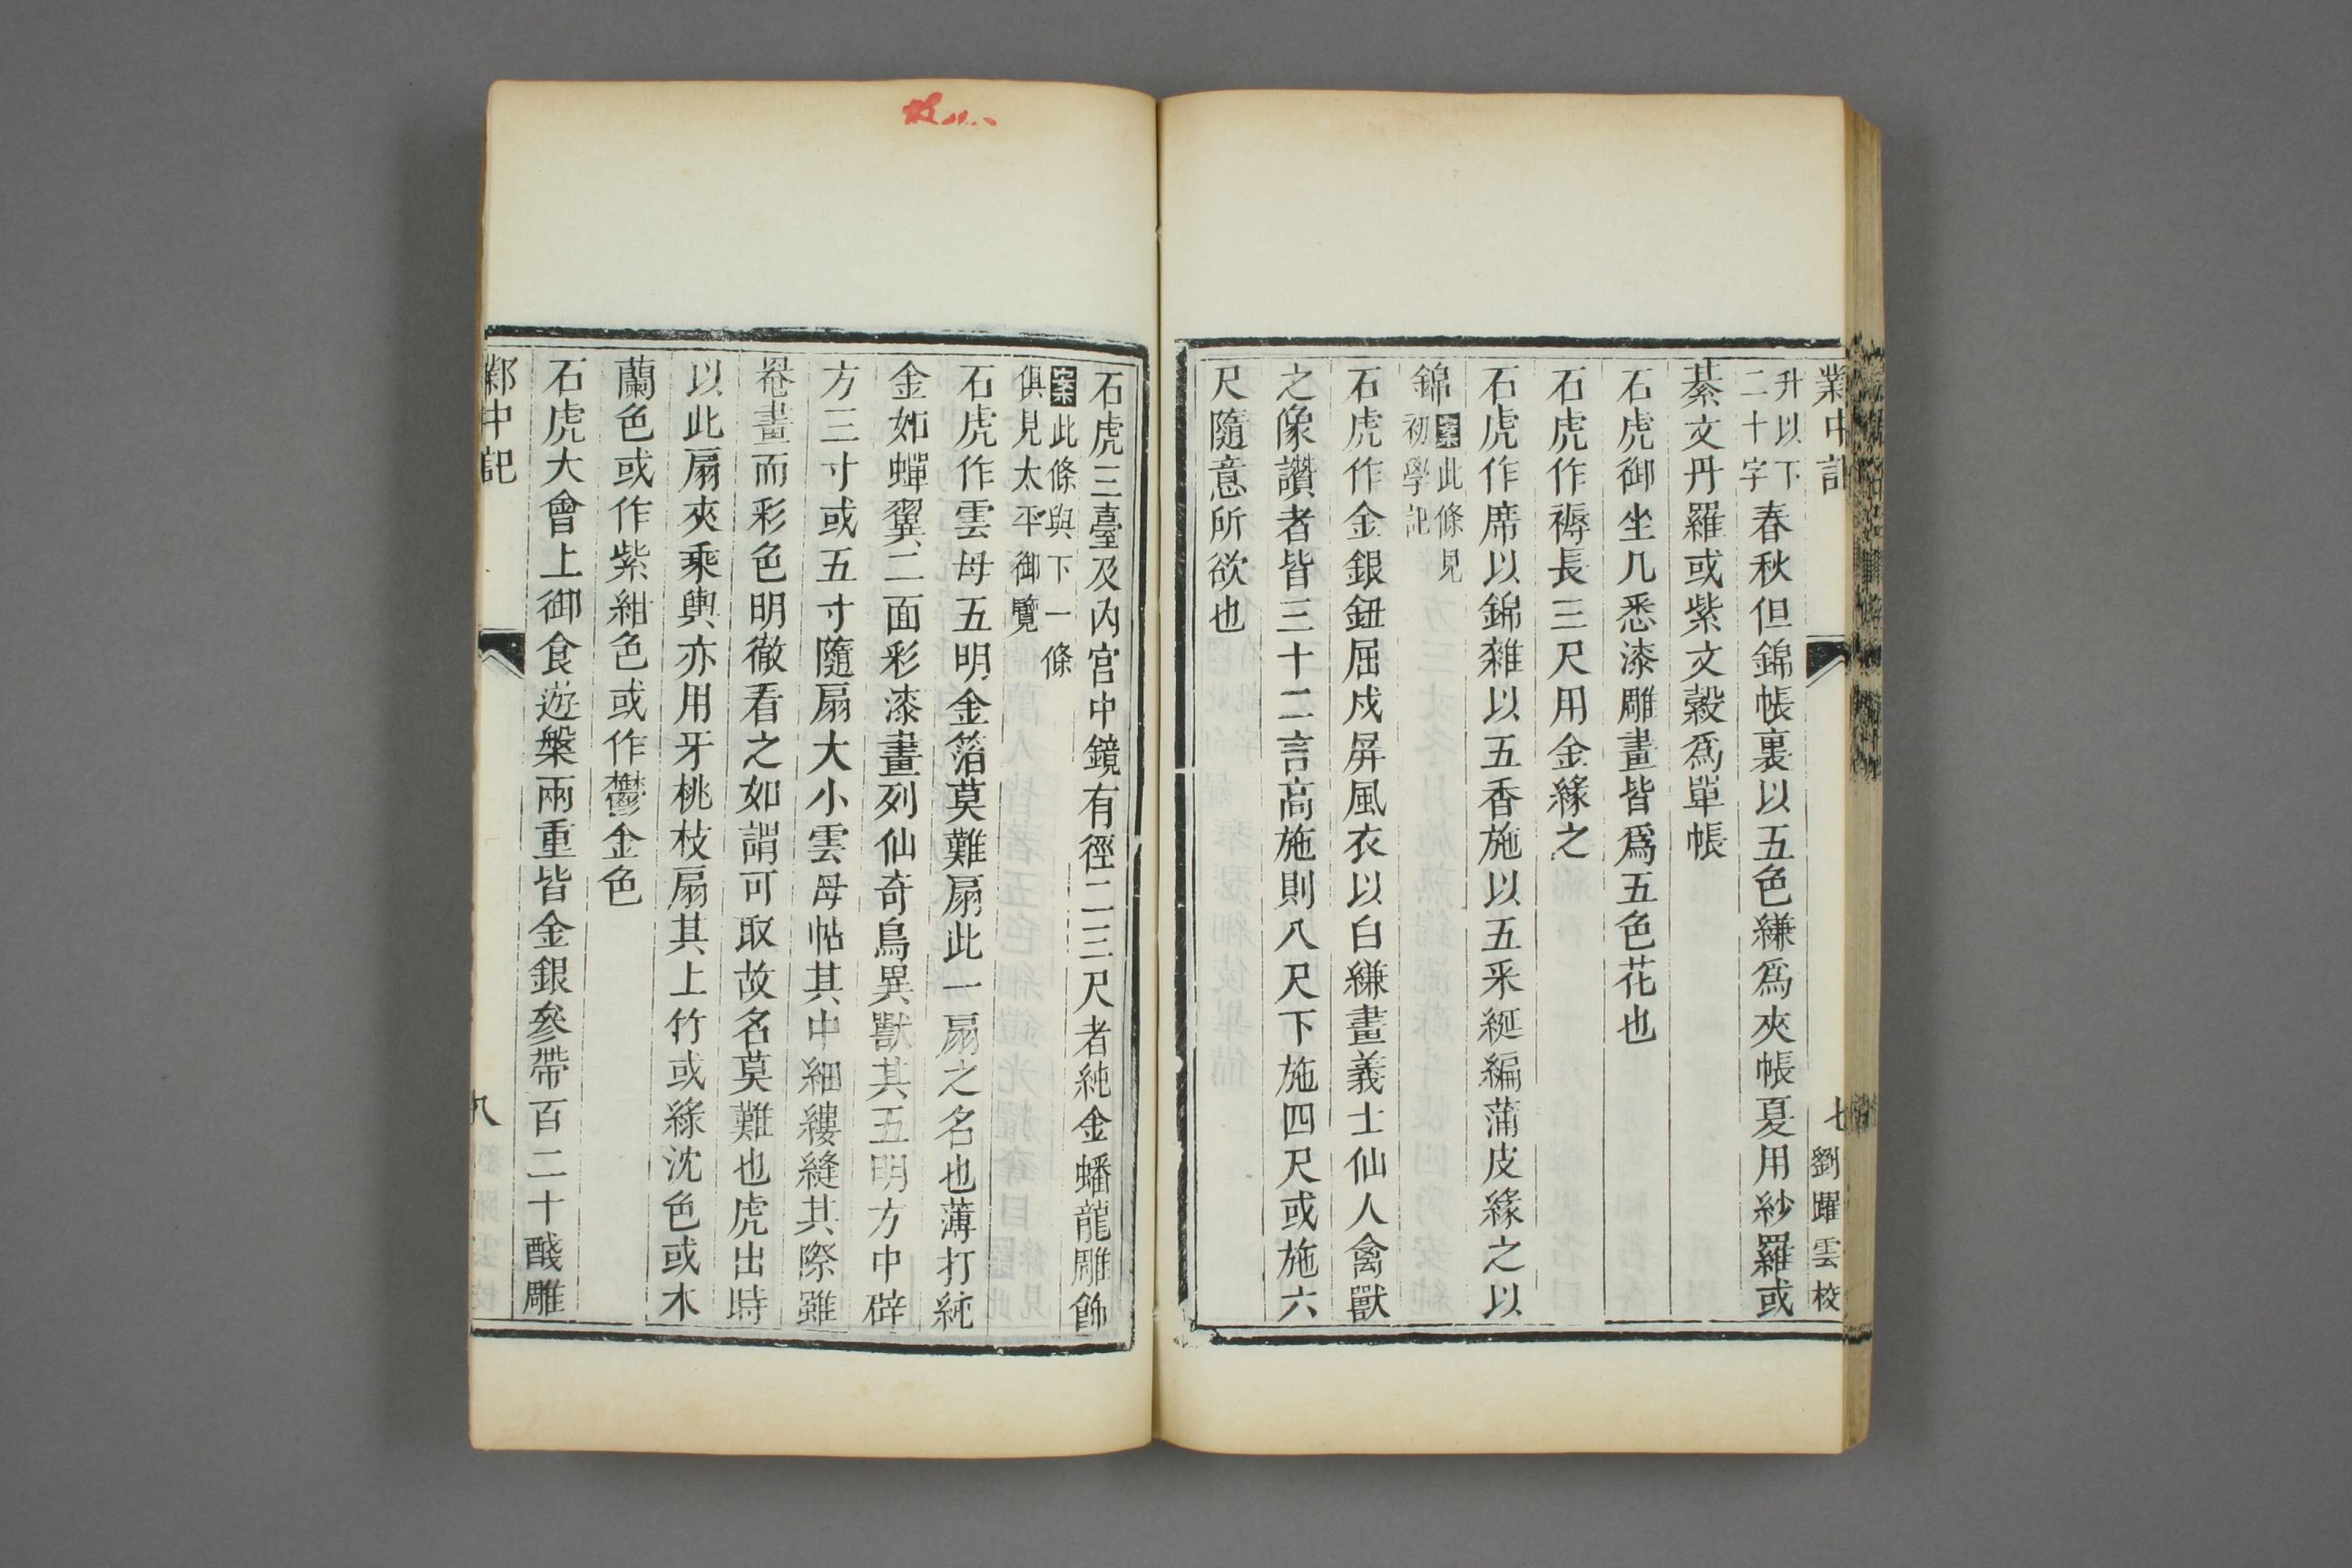 鄴中記
七
劉躍雲校
升以下
二十字
春秋但錦帳裏以五色縑爲夾帳夏用紗羅或
綦文丹羅或紫文縠爲單帳
石虎御坐几悉漆雕畫皆爲五色花也
石虎作褥長三尺用金緣之
石虎作席以錦雜以五香施以五采綖編蒲皮緣之以
錦
案此條見
初學記
石虎作金銀鈕屈戍屏風衣以白縑畫義士仙人禽獸
之像讚者皆三十二言高施則八尺下施四尺或施六
尺隨意所欲也
石虎三臺及內宮中鏡有徑二三尺者純金蟠龍雕飾
案此條與下一條
俱見太平御覽
石虎作雲母五明金箔莫難扇此一扇之名也薄打純
金如蟬翼二面彩漆畫列仙奇鳥異獸其五明方中辟
方三寸或五寸隨扇大小雲母帖其中細縷縫其際雖
罨畫而彩色明徹看之如謂可取故名莫難也虎出時
以此扇夾乘輿亦用牙桃枝扇其上竹或綠沈色或木
蘭色或作紫紺色或作鬱金色
石虎大會上御食遊槃兩重皆金銀參帶百二十醆雕
鄴中記
八